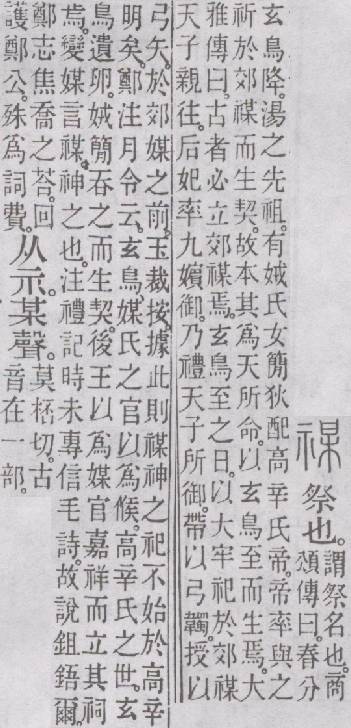 禖祭也。謂祭名也。商
頌傳曰。春分
玄鳥降。湯之先祖。有娀氏女簡狄配高辛氏帝。帝率與之
祈於郊禖而生契。故本其爲天所命。以玄鳥至而生焉。大
雅傳曰。古者必立郊禖焉。玄鳥至之日。以大牢祀於郊禖
天子親往。后妃率九嬪御。乃禮天子所御。帶以弓韣。授以
弓矢。於郊媒之前。玉裁按。據此則禖神之祀不始於高辛
明矣。鄭注月令云。玄鳥。媒氏之官以爲候。高辛氏之世。玄
鳥遺卵。娀簡吞之而生契。後王以爲媒官嘉祥而立其祠
焉。變媒言禖。神之也。注禮記時未專信毛詩。故說鉏鋙爾。
鄭志焦喬之荅。回
護鄭公。殊爲詞費。
从示。某聲。莫桮切。古
音在一部。